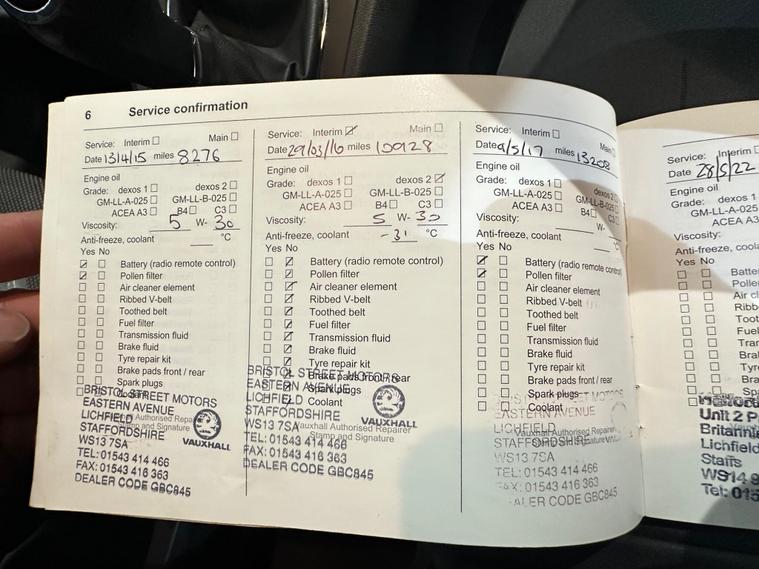 6 Service confirmation
Service: Interim Main
Date 13/4/15 miles 8276
Engine oil
Grade: dexos 1 dexos 2
GM-LL-A-025 GM-LL-B-025
ACEA A3 B4 C3
Viscosity: 5 W- 30
Anti-freeze, coolant °C
Yes No
Battery (radio remote control)
Pollen filter
Air cleaner element
Ribbed V-belt
Toothed belt
Fuel filter
Transmission fluid
Brake fluid
Tyre repair kit
Brake pads front / rear
Spark plugs
BRISTOL STREET MOTORS
EASTERN AVENUE
LICHFIELD
STAFFORDSHIRE
WS13 7SA
TEL: 01543 414 466
FAX: 01543 416 363
DEALER CODE GBC845
Authorised Repairer
Stamp and Signature
VAUXHALL
Service: Interim Main
Date 29/03/16 miles 10928
Engine oil
Grade: dexos 1 dexos 2
GM-LL-A-025 GM-LL-B-025
ACEA A3 B4 C3
Viscosity: 5 W- 30
Anti-freeze, coolant -31 °C
Yes No
Battery (radio remote control)
Pollen filter
Air cleaner element
Ribbed V-belt
Toothed belt
Fuel filter
Transmission fluid
Brake fluid
Tyre repair kit
Brake pads front / rear
Spark plugs
Coolant
BRISTOL STREET MOTORS
EASTERN AVENUE
LICHFIELD
STAFFORDSHIRE
WS13 7SA
TEL: 01543 414 466
FAX: 01543 416 363
DEALER CODE GBC845
Vauxhall Authorised Repairer
Stamp and Signature
VAUXHALL
Service: Interim Main
Date 9/5/17 miles 13208
Engine oil
Grade: dexos 1 dexos 2
GM-LL-A-025 GM-LL-B-025
ACEA A3 B4 C3
Viscosity: W-
Anti-freeze, coolant °C
Yes No
Battery (radio remote control)
Pollen filter
Air cleaner element
Ribbed V-belt
Toothed belt
Fuel filter
Transmission fluid
Brake fluid
Tyre repair kit
Brake pads front / rear
Spark plugs
Coolant
BRISTOL STREET MOTORS
EASTERN AVENUE
LICHFIELD
STAFFORDSHIRE
WS13 7SA
TEL: 01543 414 466
FAX: 01543 416 363
DEALER CODE GBC845
Vauxhall Authorised Repairer
Service: Interim
Date 28/5/22
Engine oil
Grade: dexos 1
GM-LL-A-025
ACEA A3
Viscosity:
Anti-freeze, coola
Yes No
Batte
Polle
Air cl
Ribb
Toot
Fuel
Tran
Bra
Tyr
Bra
Spa
Unit 2 P
Britanni
Lichfield
Staffs
WS14 9
Tel: 015